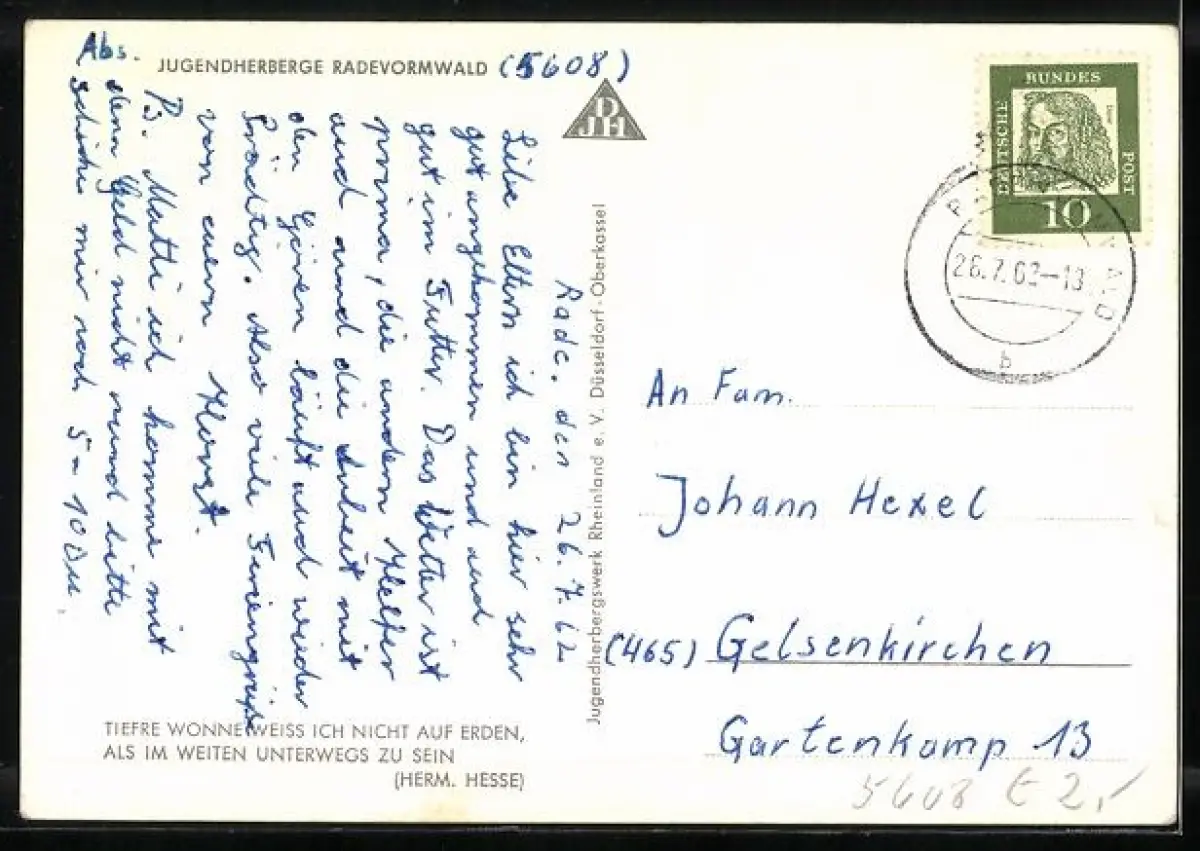 Abs. JUGENDHERBERGE RADEVORMWALD (5608)
DJH
Rade. den 26.7.62
Liebe Eltern ich bin hier sehr
gut angekommen und
gut im Futter. Das Wetter ist
prima, die andern Helfer
auch und die Arbeit mit
den Gören läuft auch wieder
Prächtig. Also viele Feriengrüße
von euern Horst.
PS. Mutti ich komme mit
dem Geld nicht rund bitte
schicke mir noch 5-10 DM
TIEFRE WONNE WEISS ICH NICHT AUF ERDEN,
ALS IM WEITEN UNTERWEGS ZU SEIN
(HERM. HESSE)
Jugendherbergswerk Rheinland e. V. Düsseldorf-Oberkassel
DEUTSCHE BUNDES POST
Dürer
10
26.7.62-18
b
An Fam.
Johann Hexel
(465) Gelsenkirchen
Gartenkamp 13
5608 € 2,-